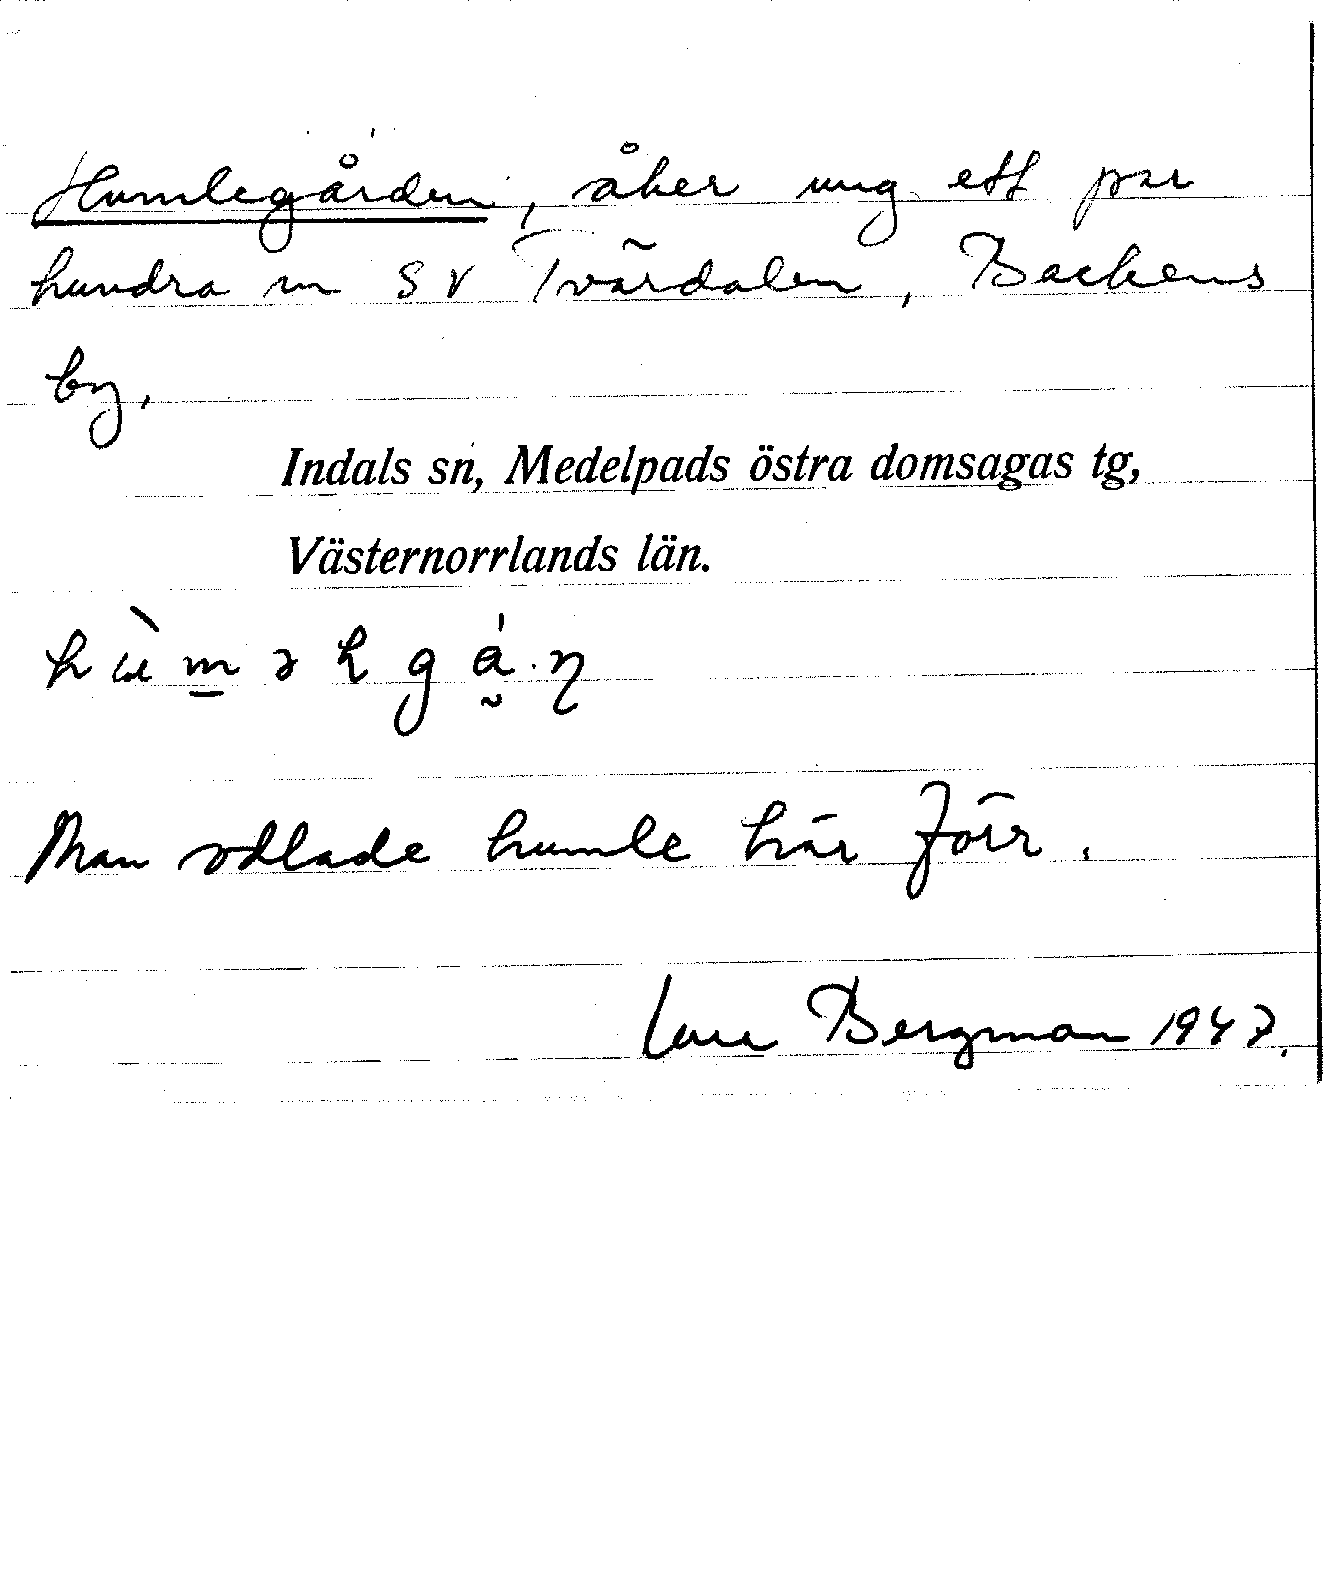 Humlegården, åker ung. ett par
hundra m SV Tvärdalen, Backens
by,
Indals sn, Medelpads östra domsagas tg,
Västernorrlands län.
Man odlade humle här förr.
Bergman 1947.